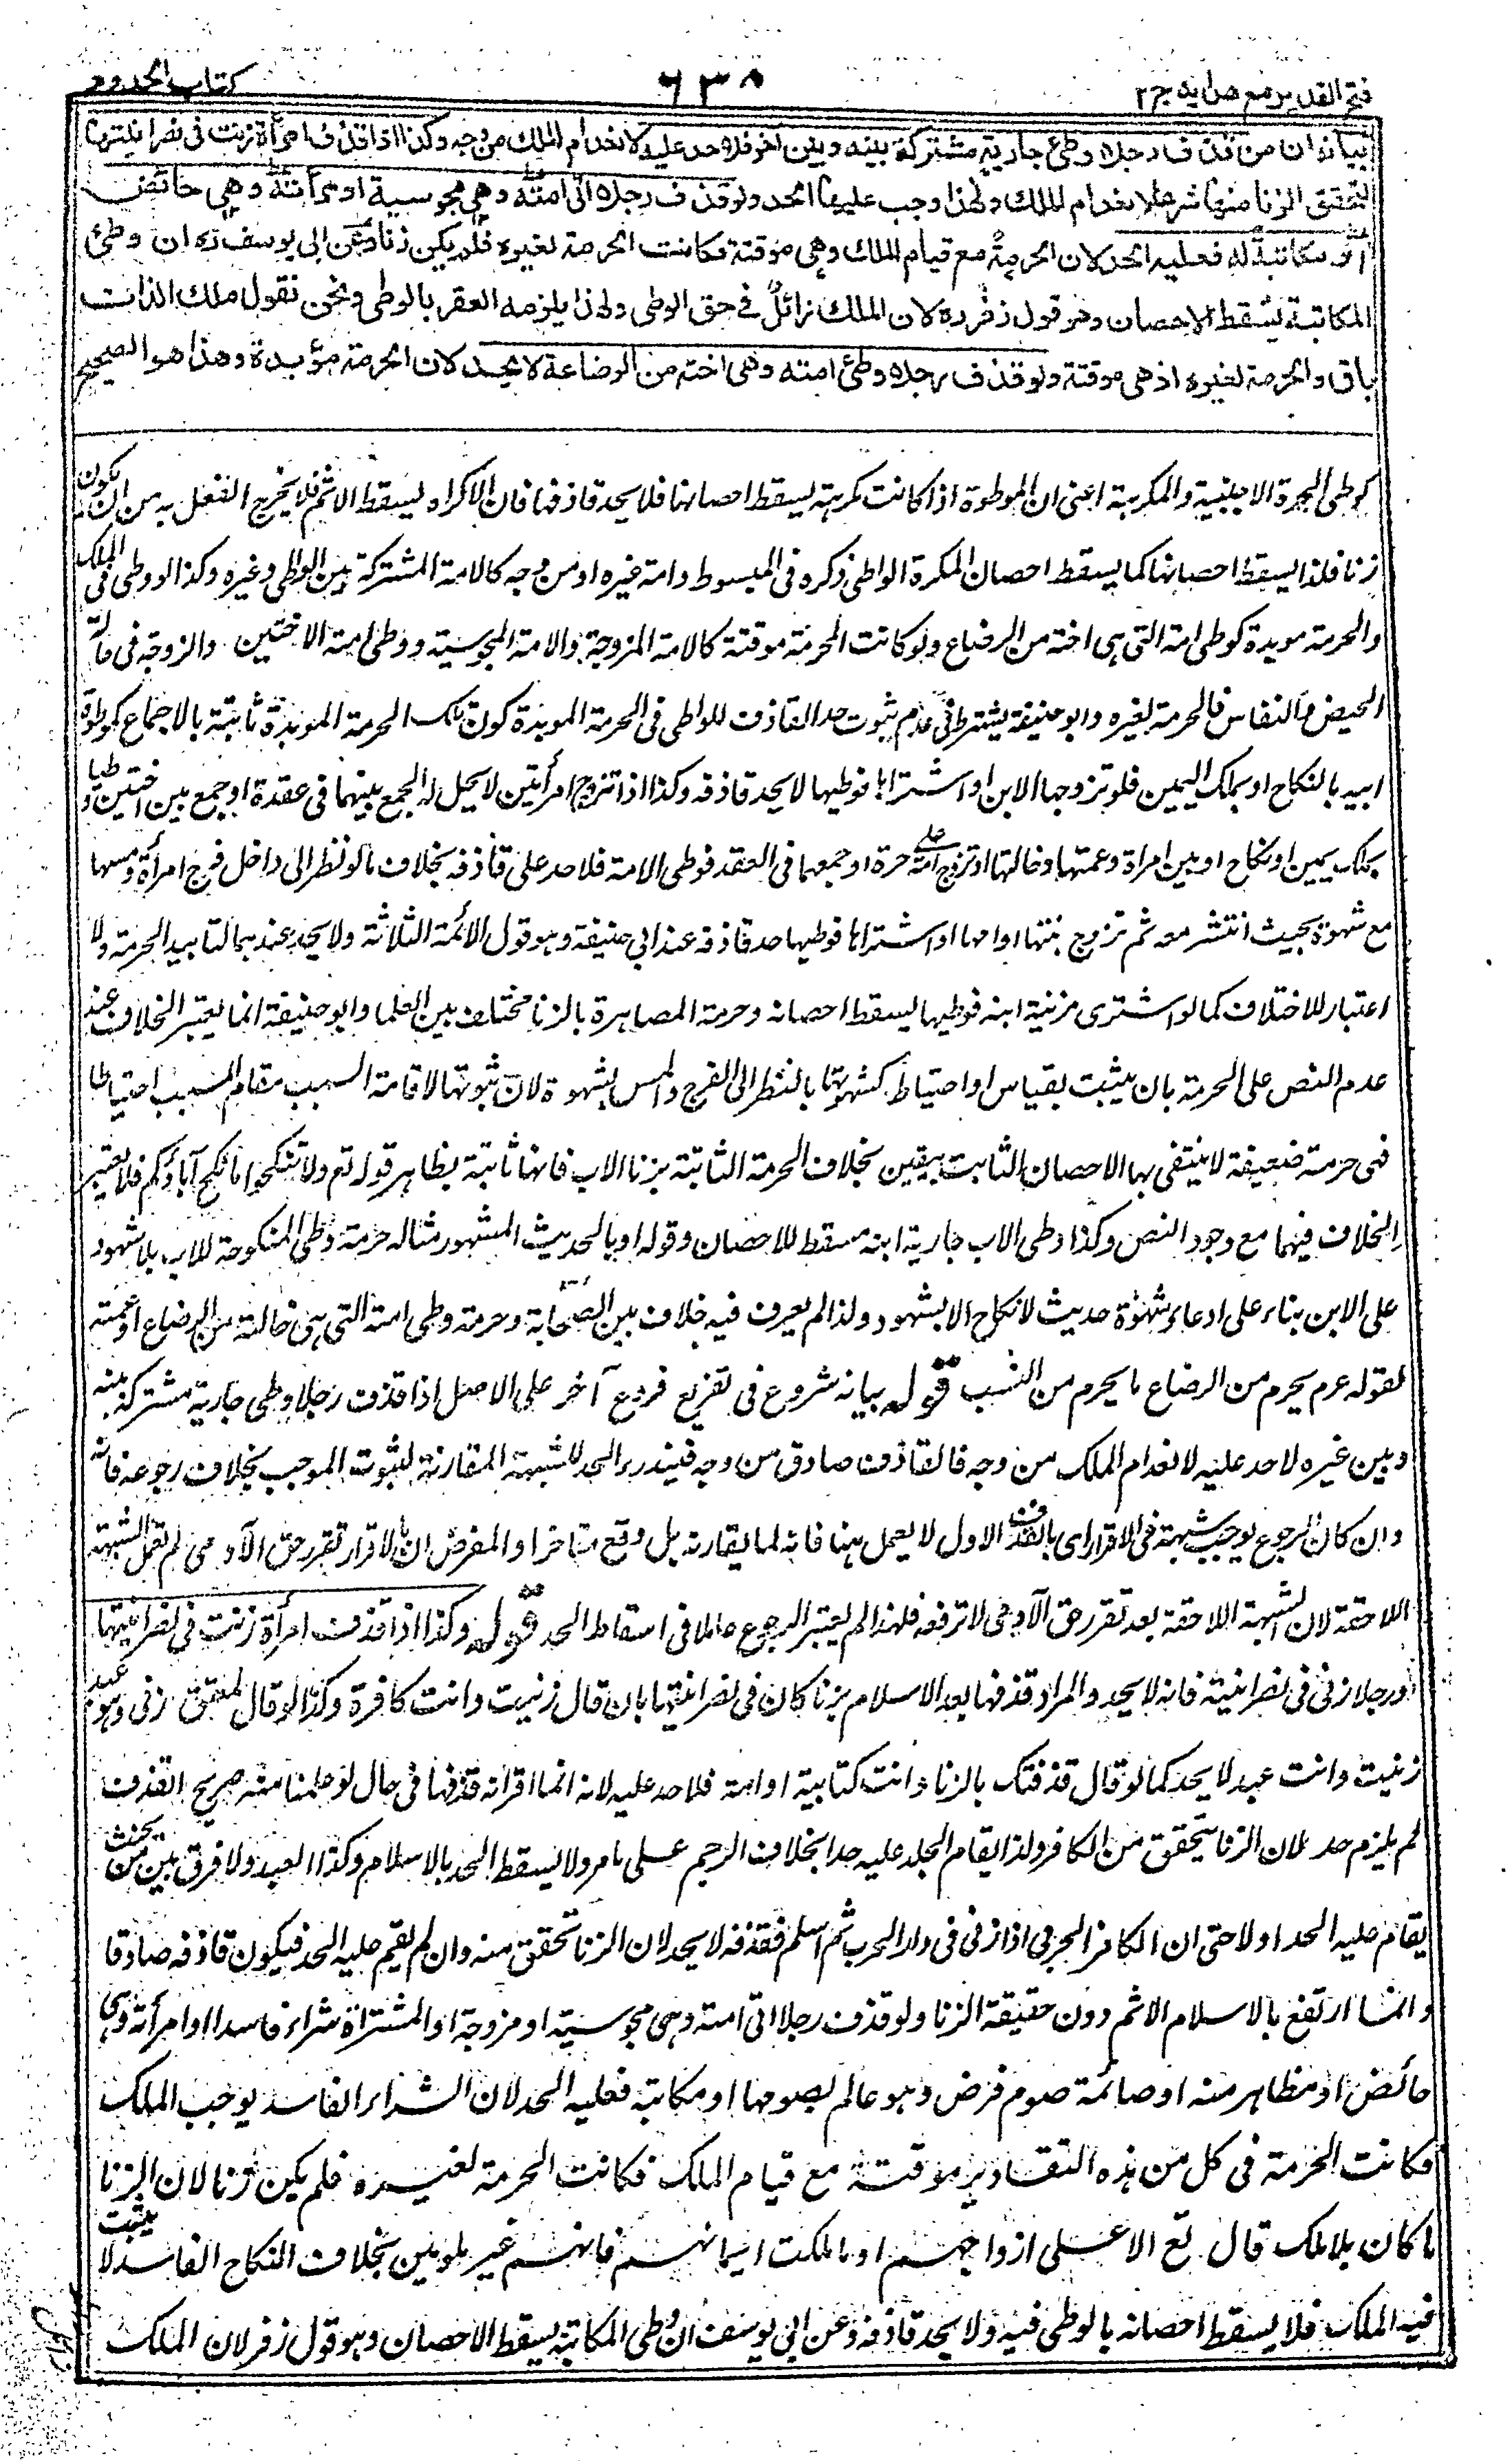 فتح القدير مع هدايه ج ٢
٦٣٨
كتاب الحدود
بيانه ان من قذف رجلا وطئ جارية مشتركة بينه وبين اخر فلا حد عليه لانعدام الملك من وجه وكذا اذا قذف امرأة زنت فى نصرانيتها
لتحقق الزنا منها شرعا لانعدام الملك ولهذا وجب عليها الحد ولو قذف رجلا اتى امته وهى مجوسية او امرأته وهى حائض
او مكاتبة له فعليه الحد لان الحرمة مع قيام الملك وهى موقتة فكانت الحرمة لغيره فلم يكن زنا وعن ابى يوسف ره ان وطئ
المكاتبة يسقط الاحصان وهو قول زفر ره لان الملك زائل فى حق الوطى ولهذا يلزمه العقر بالوطى ونحن نقول ملك الذات
باق والحرمة لغيره اذ هى موقتة ولو قذف رجلا وطئ امته وهى اخته من الرضاعة لا يحد لان الحرمة مؤبدة وهذا هو الصحيح
كوطى الحرة الاجنبية والمكرهة اعنى ان الموطوة اذا كانت مكرهة يسقط احصانها فلا يحد قاذفها فان الاكراه يسقط الاثم فلا يخرج الفعل به من ان يكون
زنا فلذا يسقط احصانها كما يسقط احصان المكره الواطى ذكره فى المبسوط وامة غيره او من وجه كالامة المشتركة بين الواطى وغيره وكذا لو وطى فى الملك
والحرمة موبدة كوطى امة التى هى اخته من الرضاع ولو كانت الحرمة موقتة كالامة المزوجة والامة المجوسية ووطى امة الاختين والزوجة فى حالة
الحيض والنفاس فالحرمة لغيره وابو حنيفة يشترط فى عدم ثبوت حد القاذف للواطى فى الحرمة الموبدة كون تلك الحرمة الموبدة ثابتة بالاجماع كموطوة
ابيه بالنكاح او بملك اليمين فلو تزوجها الابن او اشتراها فوطيها لا يحد قاذفه وكذا اذا تزوج امرأتين لا يحل له الجمع بينهما فى عقدة او جمع بين اختين وطيا
بملك يمين او نكاح او بين امراة وعمتها او خالتها او تزوج امة على حرة او جمعهما فى العقد فوطى الامة فلا حد على قاذفه بخلاف ما لو نظر الى داخل فرج امرأة او مسها
مع شهوة بحيث انتشر معه ثم تزوج بنتها او امها او اشتراها فوطيها حد قاذفه عند ابي حنيفة وهو قول الائمة الثلاثة ولا يحد عندهما لتابيد الحرمة ولا
اعتبار للاختلاف كما لو اشترى مزنية ابنه فوطيها يسقط احصانه وحرمة المصاهرة بالزنا مختلف بين العلما وابو حنيفة انما يعتبر الخلاف عند
عدم النص على الحرمة بان يثبت بقياس او احتياط كثبوتها بالنظر الى الفرج والمس بشهوة لان ثبوتها لاقامة السبب مقام المسبب احتياطا
فهى حرمة ضعيفة لا ينتفى بها الاحصان الثابت بيقين بخلاف الحرمة الثابتة بزنا الاب فانها ثابتة بظاهر قوله تع ولا تنكحوا ما نكح آباؤكم فلا يعتبر
الخلاف فيهما مع وجود النص وكذا وطى الاب جارية ابنه مسقط للاحصان وقوله او بالحديث المشهور مثاله حرمة وطى المنكوحة للاب بلا شهود
على الابن بناء على ادعاء شهرة حديث لا نكاح الا بشهود ولذا لم يعرف فيه خلاف بين الصحابة وحرمة وطى امته التى هى خالته من الرضاع او عمته
لقوله عم يحرم من الرضاع ما يحرم من النسب قوله بيانه شروع فى تفريع فروع آخر على الاصل اذا قذف رجلا وطى جارية مشتركة بينه
وبين غيره لا حد عليه لانعدام الملك من وجه فالقاذف صادق من وجه فيندرء الحد للشبهة المقارنة لثبوت الموجب بخلاف رجوعه فانه
وان كان الرجوع يوجب شبهة فى الاقرار اى بالقذف الاول لا يعمل هنا فانه لما يقارنه بل وقع متاخرا والمفرض ان بالاقرار تقرر حق الآدمى لم تعمل الشبهة
اللاحقة لان الشبهة اللاحقة بعد تقرر حق الآدمى لا ترفعه فلهذا لم يعتبر الرجوع عاملا فى اسقاط الحد قوله وكذا اذا قذف امرأة زنت فى نصرانيتها
او رجلا زنى فى نصرانيته فانه لا يحد والمراد قذفها بعد الاسلام بزنا كان فى نصرانيتها بان قال زنيت وانت كافرة وكذا لو قال لمعتق زنى وهو عبد
زنيت وانت عبد لا يحد كما لو قال قذفتك بالزنا وانت كتابية او امة فلا حد عليه لانه انما اقر انه قذفها فى حال لو علمنا منه صريح القذف
لم يلزم حد لان الزنا يتحقق من الكافر ولذا يقام الجلد عليه حدا بخلاف الرجم على ما مر ولا يسقط الحد بالاسلام وكذا العبد ولا فرق بين من بحيث
يقام عليه الحد او لا حتى ان الكافر الحربى اذا زنى فى دار الحرب ثم اسلم فقذفه لا يحد لان الزنا تحقق منه وان لم يقم عليه الحد فيكون قاذفه صادقا
وانما ارتفع بالاسلام الاثم دون حقيقة الزنا ولو قذف رجلا اتى امته وهى مجوسية او مزوجة او المشتراة شراء فاسدا او امرأته وهى
حائض او مظاهر منه او صائمة صوم فرض وهو عالم بصومها او مكاتبة فعليه الحد لان الشراء الفاسد يوجب الملك
فكانت الحرمة فى كل من هذه التقادير موقتة مع قيام الملك فكانت الحرمة لغيره فلم يكن زنا لان الزنا
ما كان بلا ملك قال تع الا على ازواجهم او ما ملكت ايمانهم فانهم غير ملومين بخلاف النكاح الفاسد لا يثبت
فيه الملك فلا يسقط احصانه بالوطى فيه ولا يحد قاذفه وعن ابى يوسف ان وطى المكاتبة يسقط الاحصان وهو قول زفر لان الملك